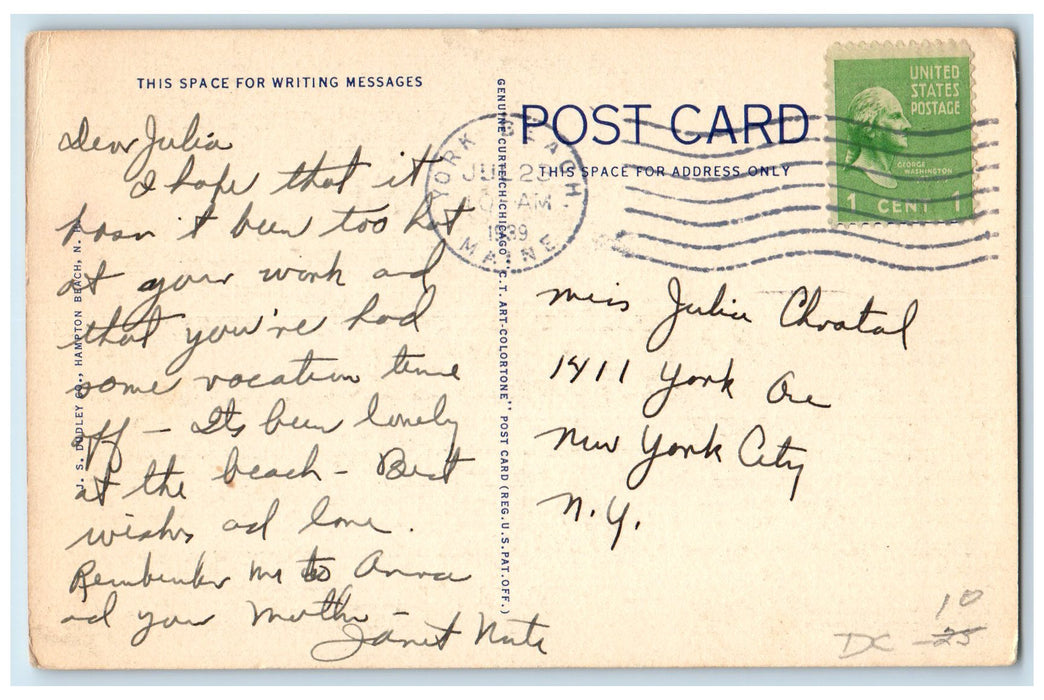 THIS SPACE FOR WRITING MESSAGES
Dear Julia
I hope that it
hasn't been too hot
at your work and
that you're had
some vacation time
off – Its been lonely
at the beach – Best
wishes and love.
Remember me to Anna
and your Mother –
Janet
J. S. DUDLEY CO., HAMPTON BEACH, N. H.
GENUINE CURTEICH-CHICAGO "C.T. ART-COLORTONE" POST CARD (REG. U.S. PAT. OFF.)
POST CARD
THIS SPACE FOR ADDRESS ONLY
YORK BEACH
23
AM
1939
MAINE
UNITED
STATES
POSTAGE
GEORGE
WASHINGTON
1 CENT 1
Miss Julia
1411 York Ave
New York City
N.Y.
10
DC 25